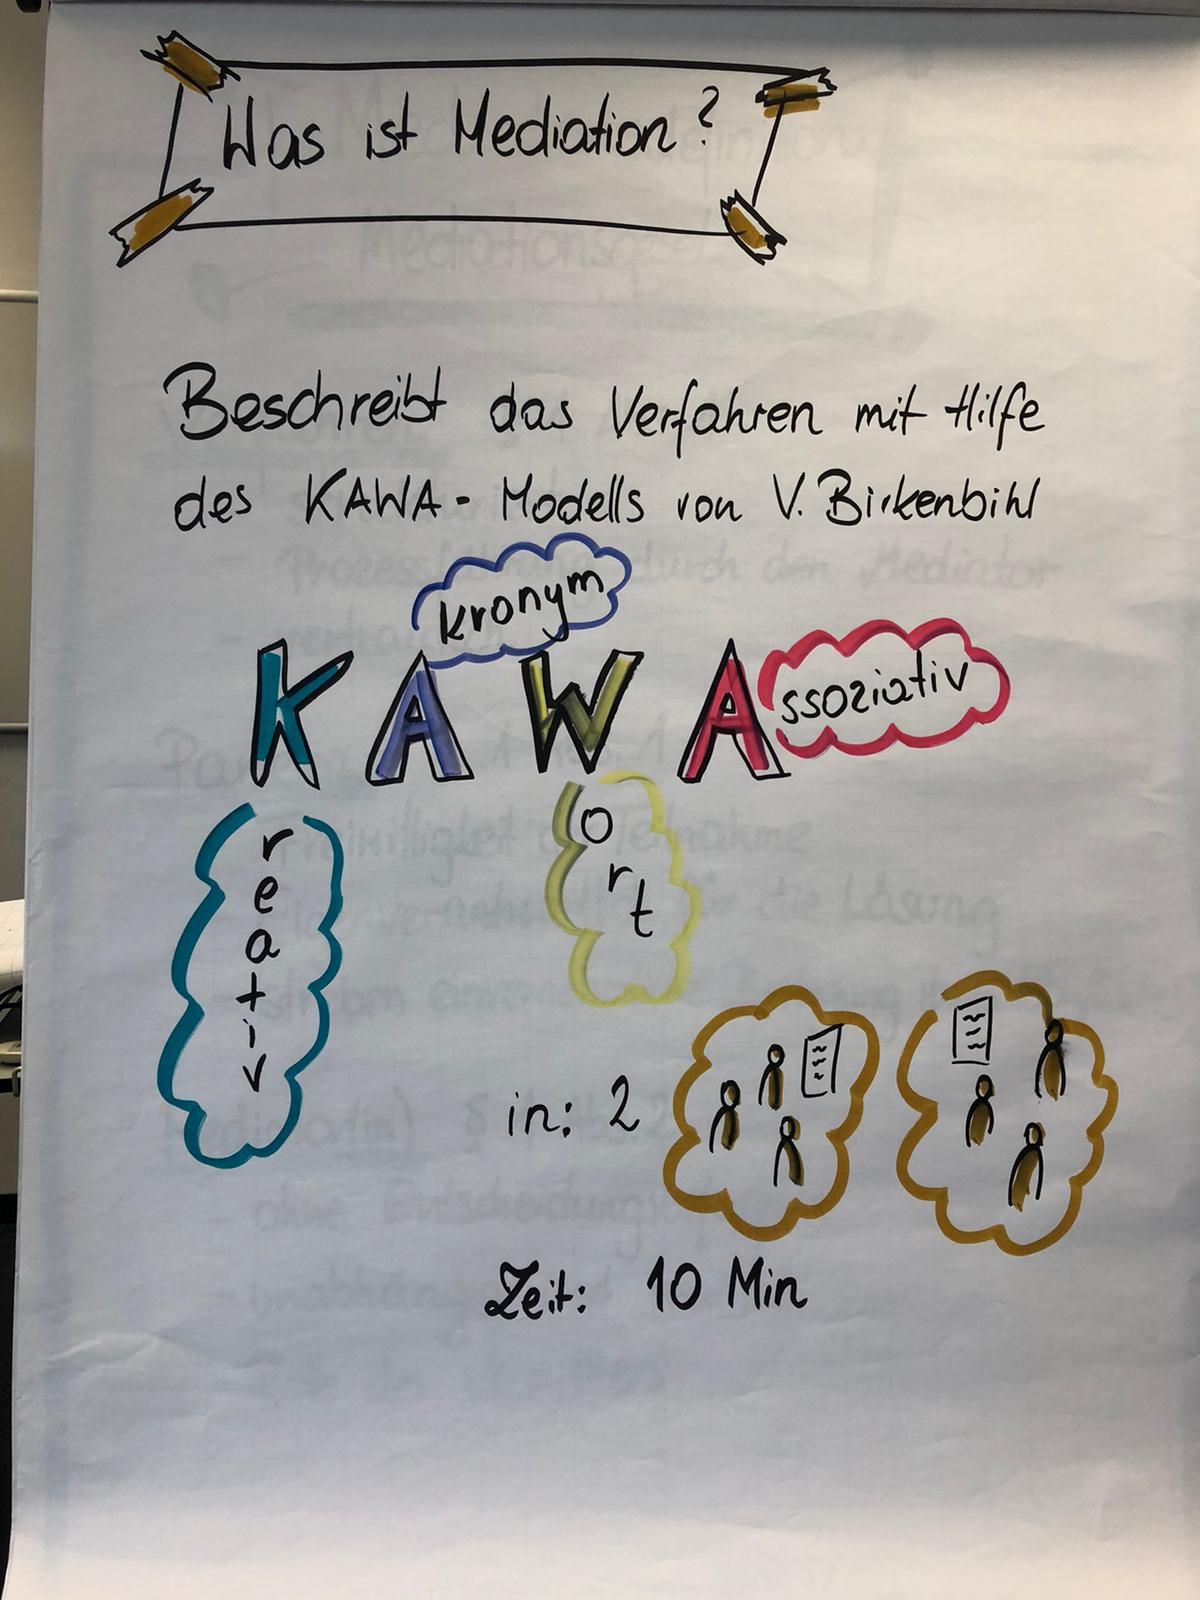 Was ist Mediation?
Beschreibt das Verfahren mit Hilfe
des KAWA - Modells von V. Birkenbihl
kronym
K A W A ssoziativ
reativ
ort
in: 2
Zeit: 10 Min